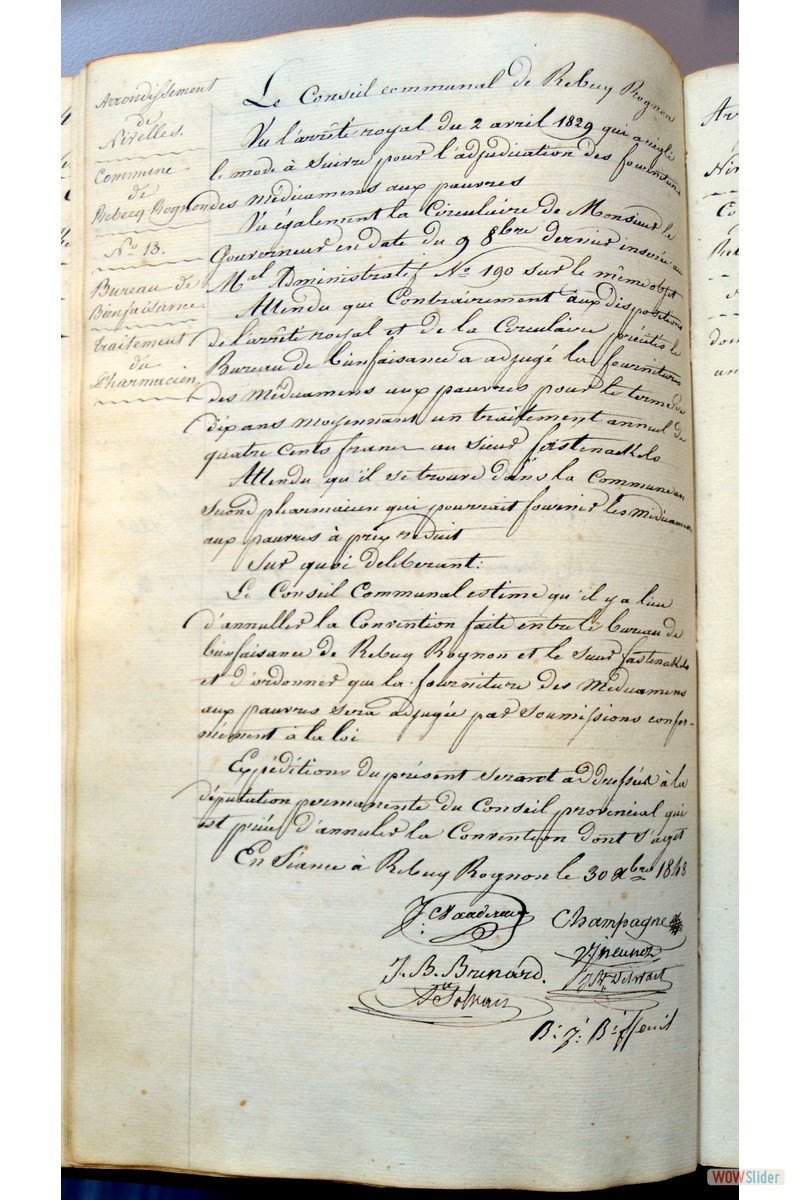 Arrondissement
de
Nivelles.
Commune
de
Rebecq Rognon
No 13.
Bureau de
Bienfaisance.
traitement
du
Pharmacien.
Le Conseil communal de Rebecq Rognon
Vu l'arrêté royal du 2 avril 1829 qui a réglé
le mode à suivre pour l'adjudication des fournitures
des médicamens aux pauvres
Vu également la Circulaire de Monsieur le
Gouverneur en date du 9 8bre dernier insérée au
Mal Administratif No 190 sur le même objet
Attendu que Contrairement aux dispositions
de l'arrêté royal et de la Circulaire précités le
Bureau de bienfaisance a adjugé la fourniture
des médicamens aux pauvres pour le terme de
dix ans moyennant un traitement annuel de
quatre cents francs au sieur fastenaekels
Attendu qu'il se trouve dans la Commune un
second pharmacien qui pourrait fournir les médicamens
aux pauvres à prix réduit
Sur quoi deliberant:
Le Conseil Communal estime qu'il y a lieu
d'annuller la Convention faite entre le bureau de
bienfaisance de Rebecq Rognon et le sieur fastenaekels
et d'ordonner que la fourniture des médicamens
aux pauvres sera adjugée par soumissions confor-
mément à la loi
Expéditions du présent seront addressées à la
députation permanente du Conseil provincial qui
est priée d'annuler la Convention dont s'agit
En Séance à Rebecq Rognon le 30 xbre 1843
Champagne
J. B. Brunard.
WOWSlider